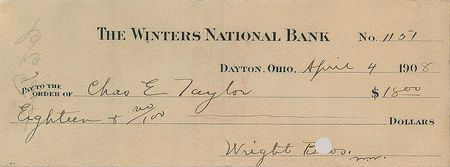 THE WINTERS NATIONAL BANK No. 1151
DAYTON, OHIO, April 4 1908
PAY TO THE ORDER OF Chas E Taylor $1800
Eighteen & no/100 DOLLARS
Wright Bros.